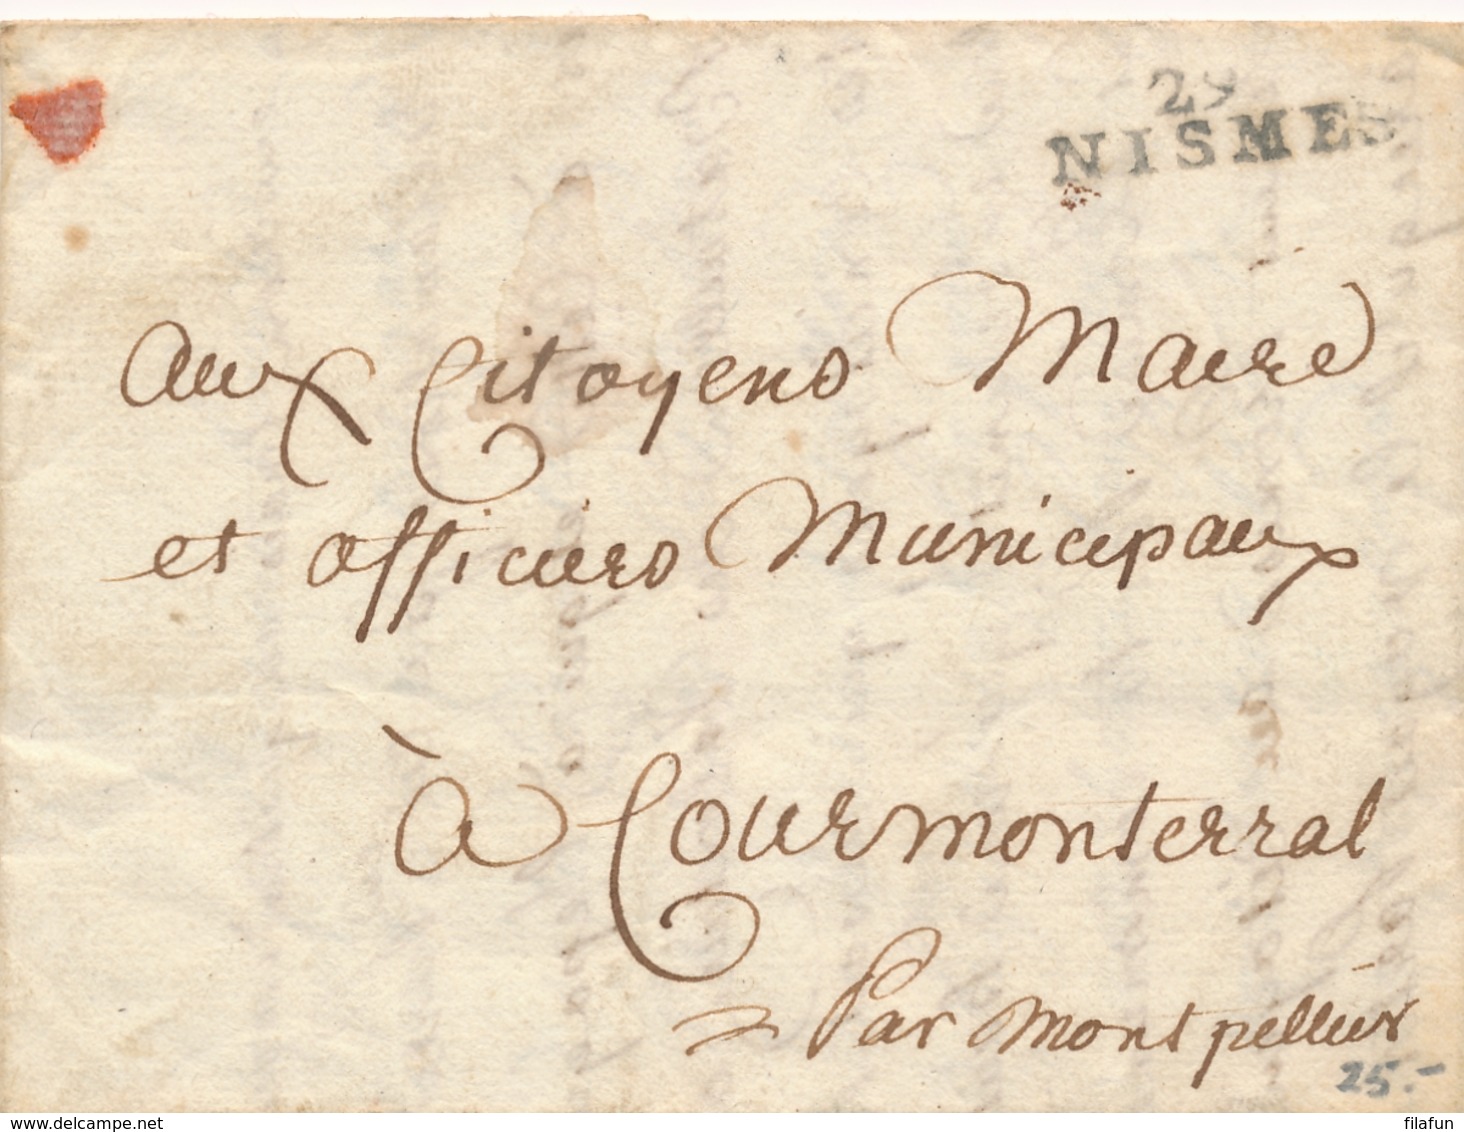 29
NISMES
aux Citoyens Maire
et officiers Municipaux
à Courmonterral
Par Montpellier
25.-
delcampe.net
filafun